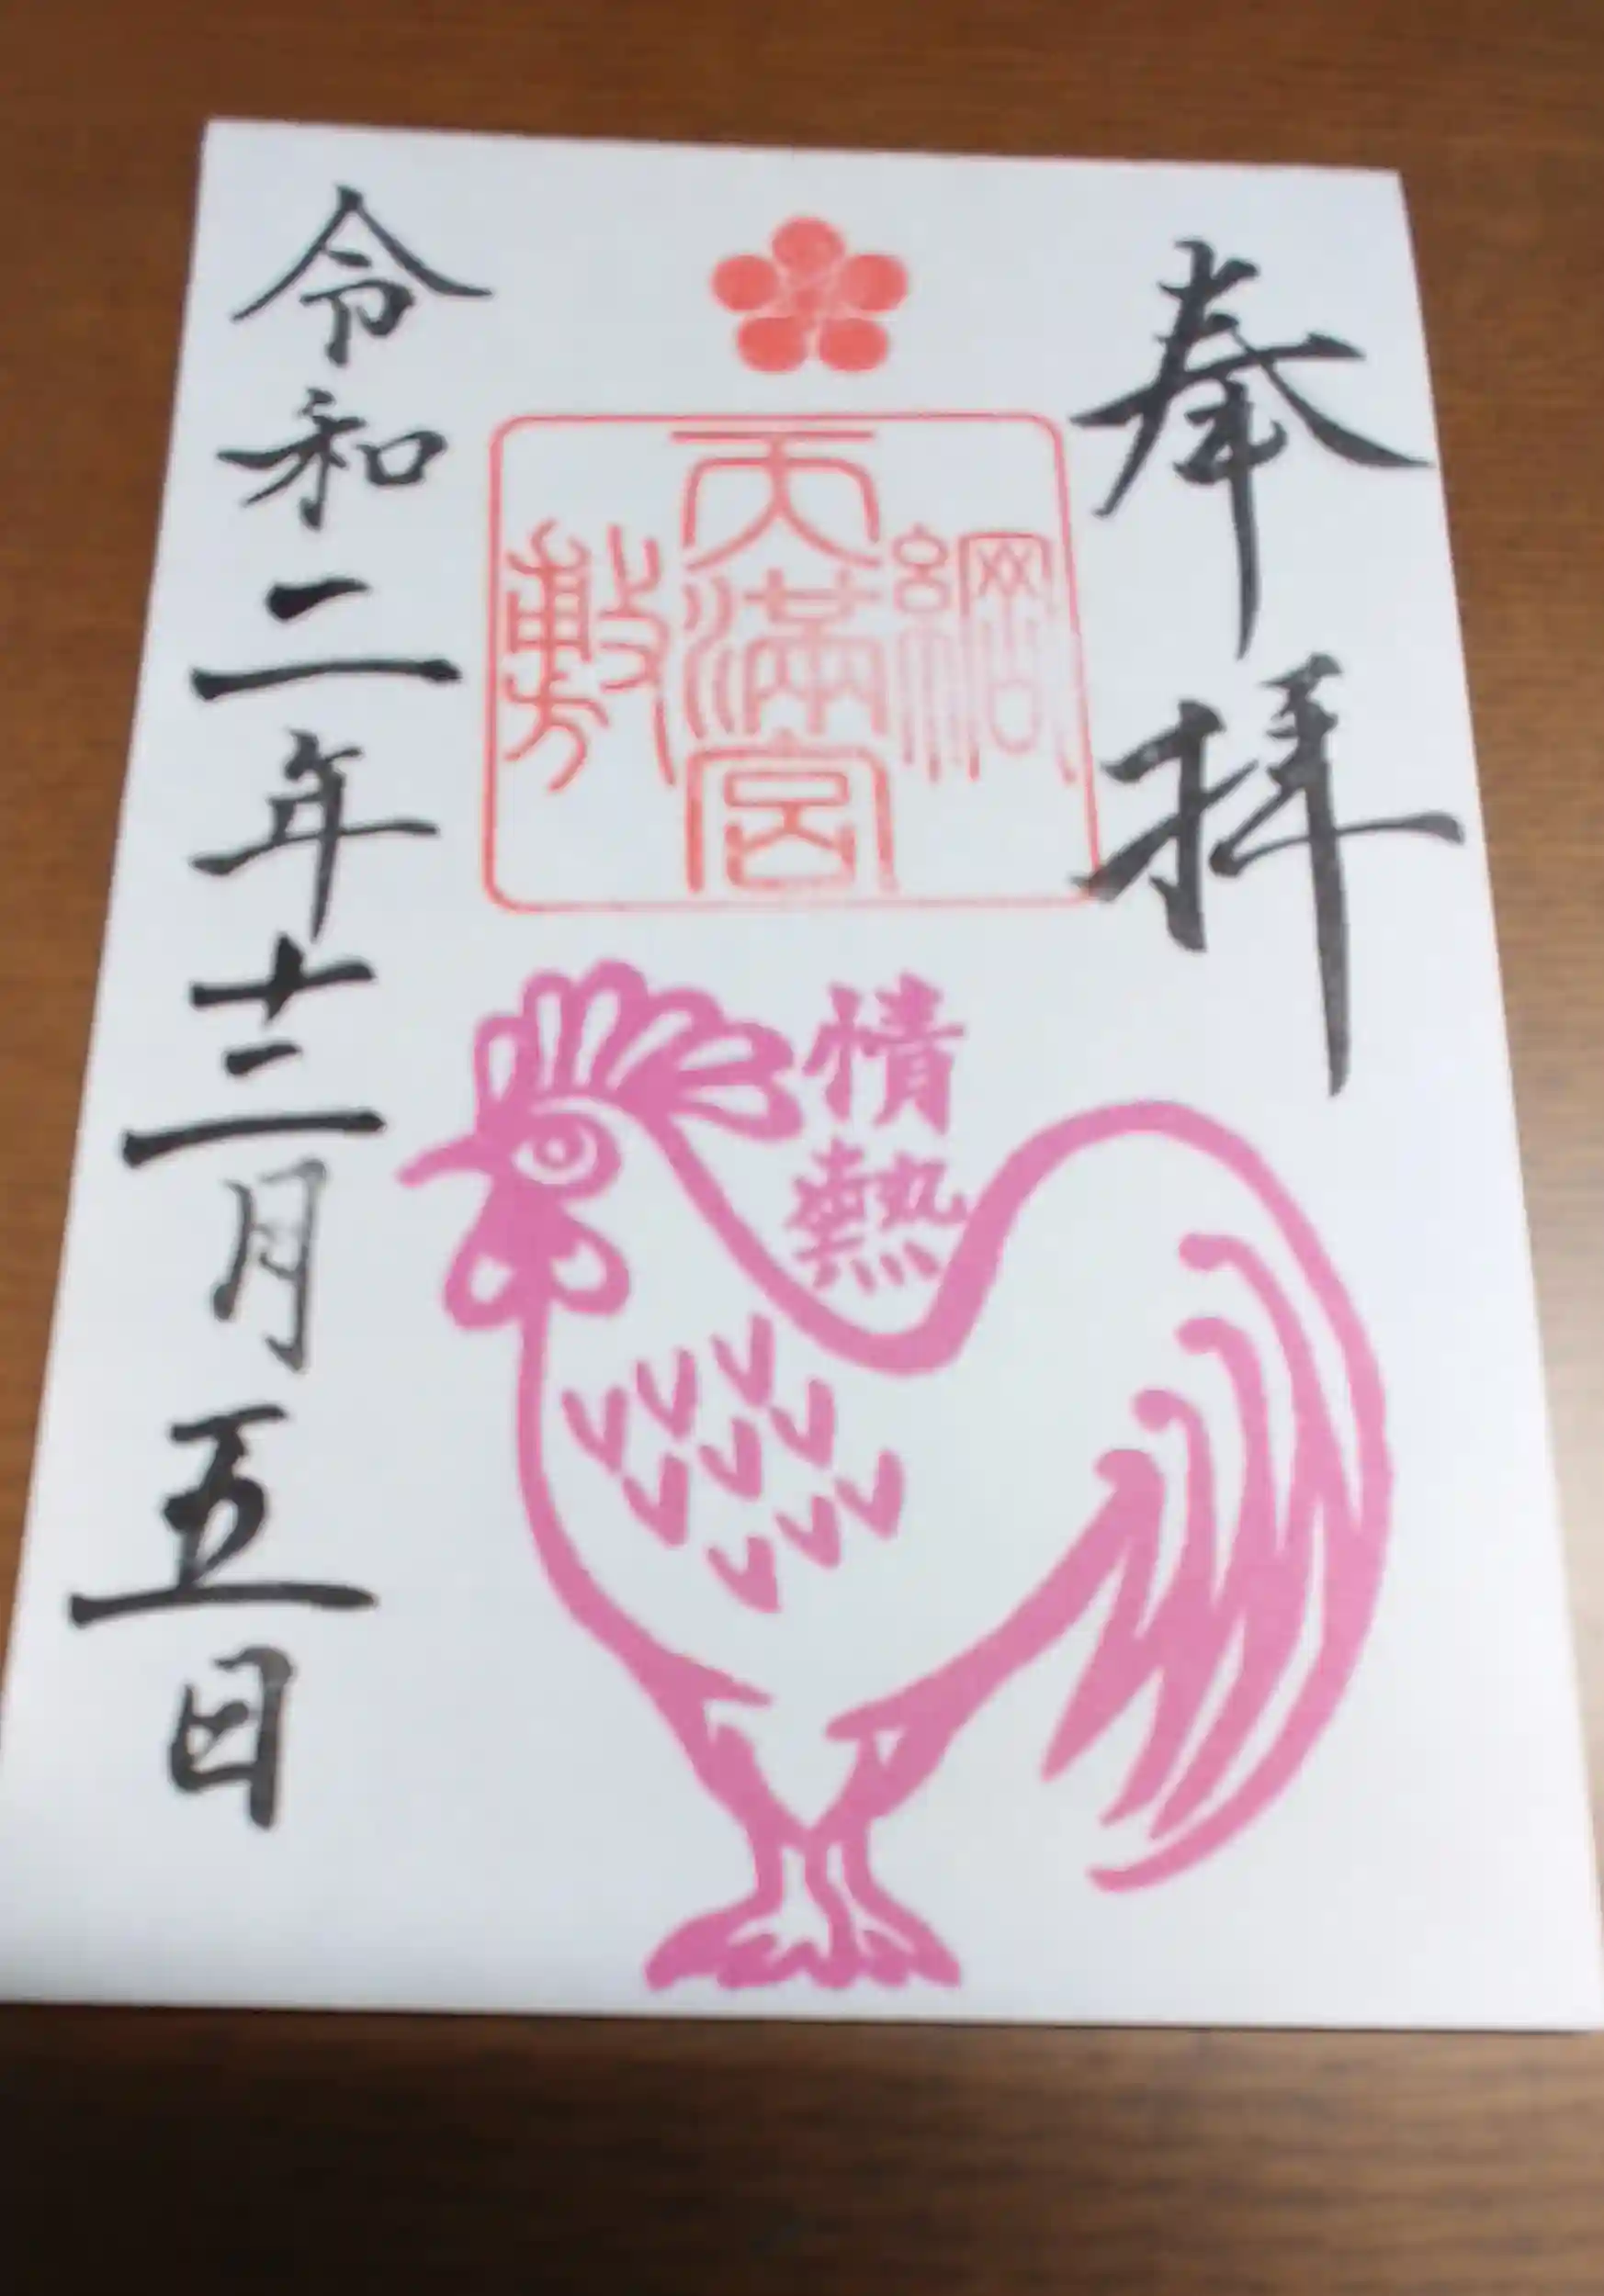 奉拝
綱
天満宮
敷
情熱
令和二年十二月五日